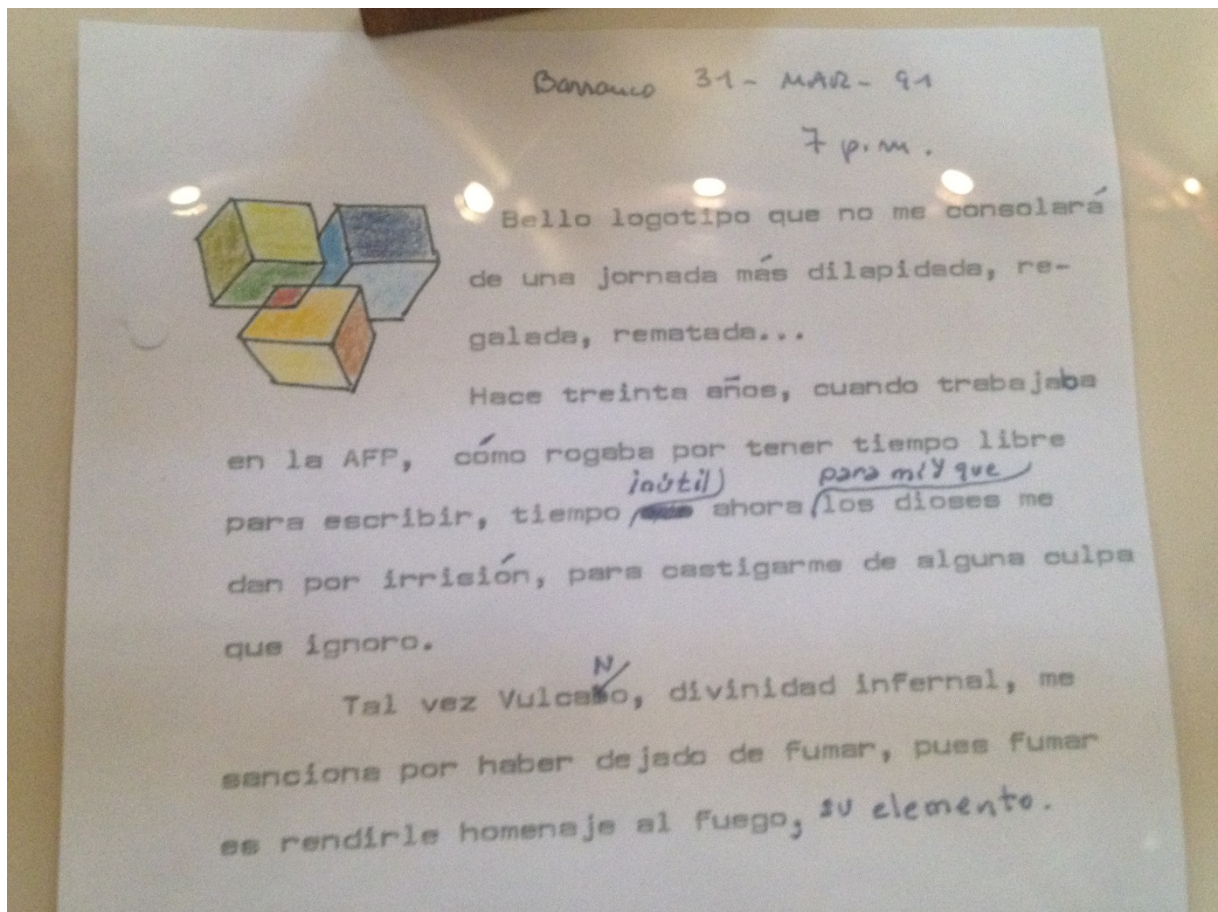 Barranco 31- MAR- 91
7 p.m.
Bello logotipo que no me consolará
de una jornada más dilapidada, re-
galada, rematada...
Hace treinta años, cuando trabajaba
en la AFP, cómo rogaba por tener tiempo libre
inútil para mí y que
para escribir, tiempo ahora los dioses me
dan por irrisión, para castigarme de alguna culpa
que ignoro.
N
Tal vez Vulcano, divinidad infernal, me
sanciona por haber dejado de fumar, pues fumar
es rendirle homenaje al fuego, su elemento.